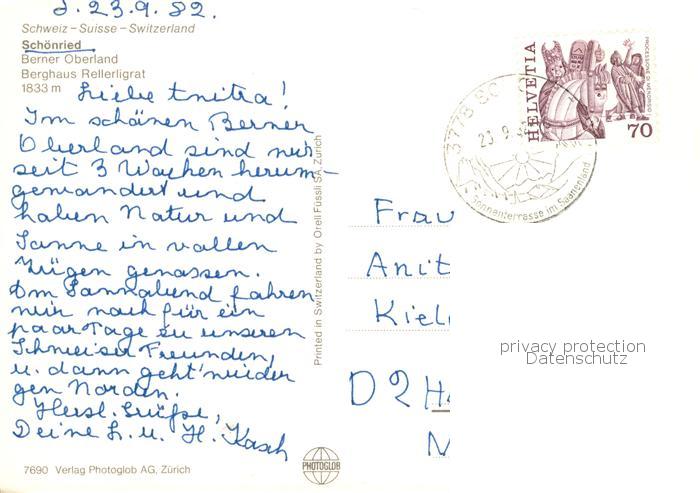 d. 23.9.82.
Schweiz – Suisse – Switzerland
Schönried
Berner Oberland
Berghaus Rellerligrat
1833 m
Liebe Anita!
Im schönen Berner
Oberland sind wir
seit 3 Wochen herum-
gewandert und
haben Natur und
Sonne in vollen
Zügen genossen.
Am Sonnabend fahren
wir noch für ein
paar Tage zu unseren
Schweizer Freunden,
u. dann geht's wieder
gen Norden.
Herzl. Grüße,
Deine L. u. H. Kasch
7690 Verlag Photoglob AG, Zürich
Printed in Switzerland by Orell Füssli SA, Zürich
PHOTOGLOB
HELVETIA
PROCESSIONE DI MENDRISIO
70
3778 SC
23.9.
Sonnenterrasse im Saanenland
Frau
Anit
Kiel
D 2 H
privacy protection
Datenschutz